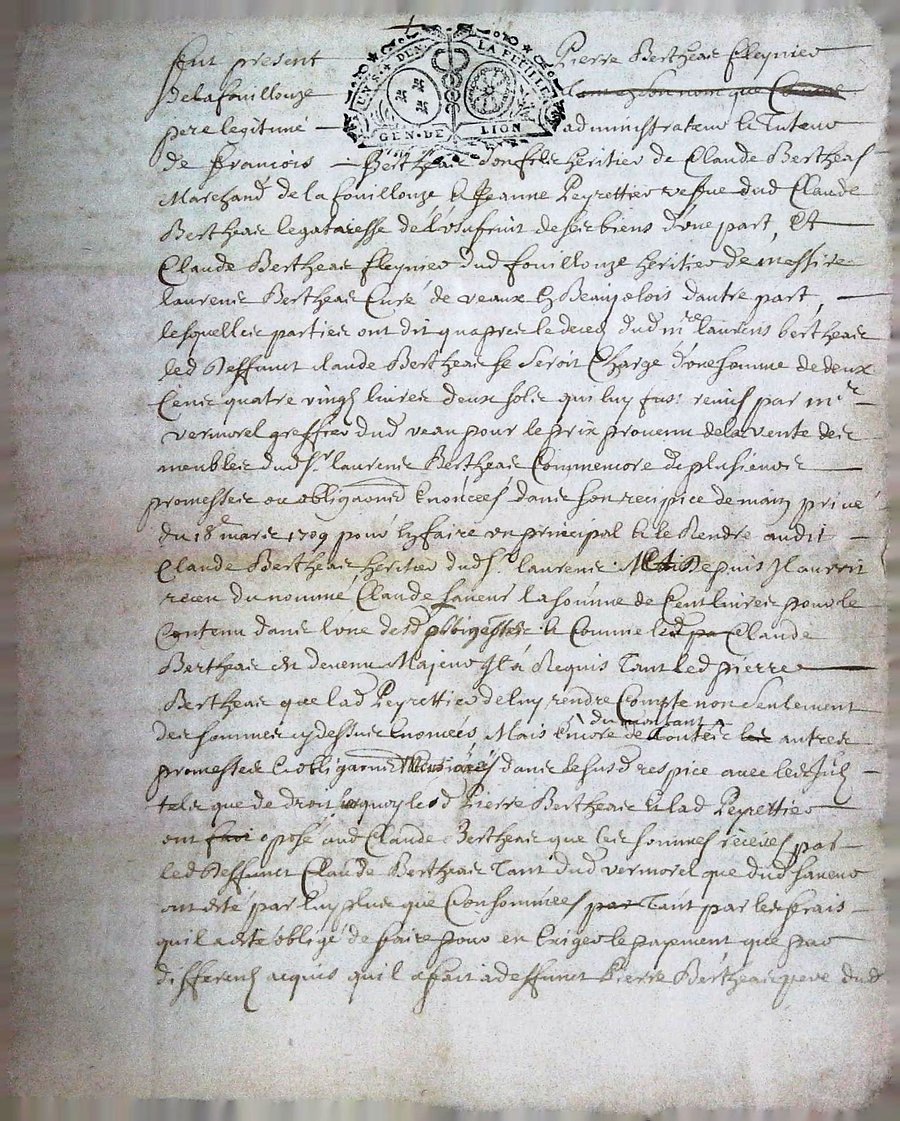 UN S. 4 DEN. LA FEUILLE
GEN. DE LION
furent present Pierre Bertheas fleynier
de la fouillouze
pere legitime administrateur et Tuteur
de francois Bertheas son fils heritier de Claude Bertheas
Marchand de la fouillouze et Jeanne Peyrettier vefve dud Claude
Bertheas legataresse de l'usufruit de ses biens d'une part, Et
Claude Bertheas fleynier dud fouillouze heritier de messire
laurens Bertheas Curé de veaux en Beaujolois dautre part,
lesquelles parties ont dit quapres le deces dud mre laurens bertheas
led deffunct claude Bertheas se seroit Chargé d'une somme de deux
Cens quatre vingt livres deux sols qui luy fust remis par mre
vermorel greffier dud veau pour le prix provenu de la vente des
meubles dud sr laurens Bertheas Commemore de plusieurs
promesses ou obligaons Enoncées dans son recipice de main privé
du 18 mars 1709 pour en faire en principal et le Rendre audit
Claude Bertheas heritier dud sr laurens Depuis Il auroit
receu du nommé Claude faveur la somme de Cent livres pour le
Contenu dans lune desd et Comme led Claude
Bertheas est devenu Majeur Il a Requis Tant led pierre
Bertheas que lad Peyrettier de luy rendre Compte non seulement
des sommes cy dessus Enoncées Mais Encore du montant de toutes autres
promesses et obligaons dans le susd avec les
tels que de droit quoy lesd Pierre Bertheas et lad Peyrettier
ont oposé aud Claude Bertheas que les sommes receues par
led deffunct Claude Bertheas Tant dud vermorel que dud faveur
ont esté par luy plus que Consommées Tant par les frais
quil a esté obligé de faire pour en Exiger le payement que par
differens acquis quil a fait a deffunct Pierre Bertheas pere dud